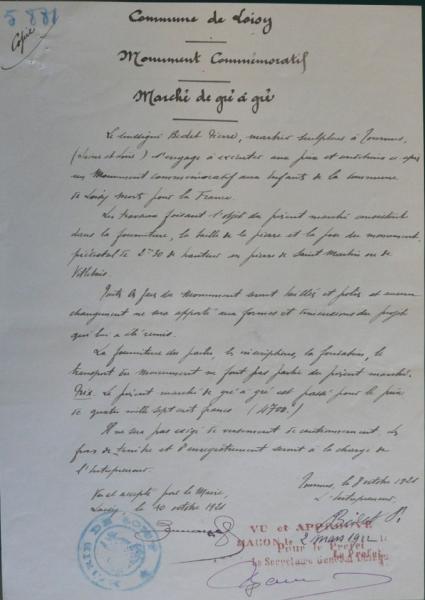 5881
Copie
Commune de Loisy
Monument Commémoratif
Marché de gré à gré
Le soussigné Bedet Pierre, marbrier sculpteur à Tournus,
(Saône et Loire) s'engage à exécuter aux prix et conditions ci après
un Monument commémoratif aux enfants de la commune
de Loisy morts pour la France.
Les travaux faisant l'objet du présent marché consistent
dans la fourniture, la taille de la pierre et la pose du monument,
piédestal de 2m30 de hauteur en pierre de Saint Martin ou de
Villebois.
Toutes les faces du Monument seront taillées et polies et aucun
changement ne sera apporté aux formes et dimensions du projet
qui lui a été remis.
La fourniture des , les inscriptions, la fondation, le
transport du Monument ne font pas partie du présent marché.
Prix. Le présent marché de gré à gré est passé pour le prix
de quatre mille sept cent francs (4700.)
Il ne sera pas exigé de versement de cautionnement. Les
frais de timbre et d'enregistrement seront à la charge de
l'Entrepreneur.
Tournus, le 8 octobre 1921
Vu et accepté par le Maire, L'Entrepreneur,
Loisy, le 10 octobre 1921
VU et APPROUVÉ
MACON, le 2 mars 1922
Pour le Préfet
Le Secrétaire Général
MAIRIE DE LOISY